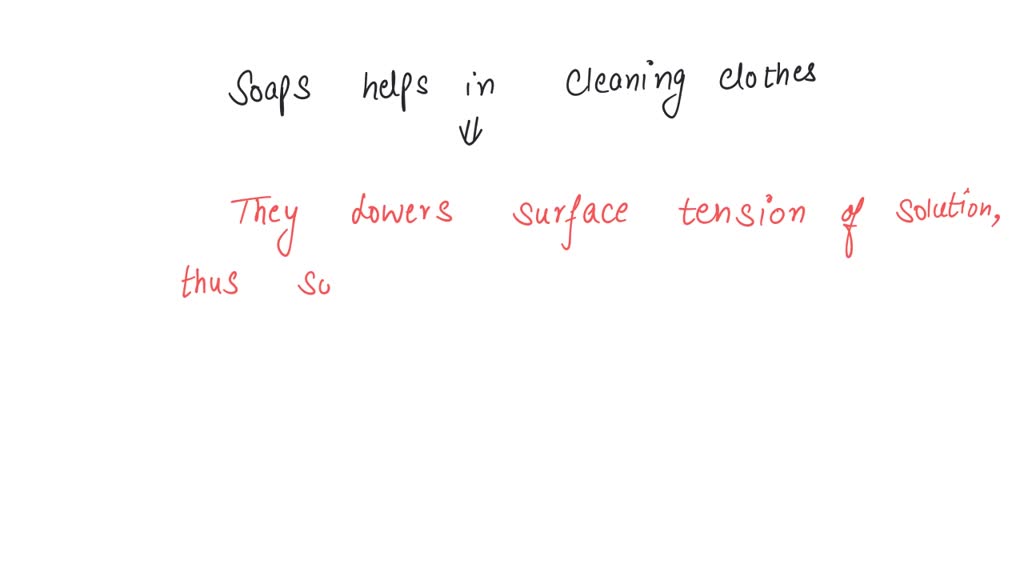 Soaps helps in cleaning clothes
They lowers surface tension of solution,
thus so